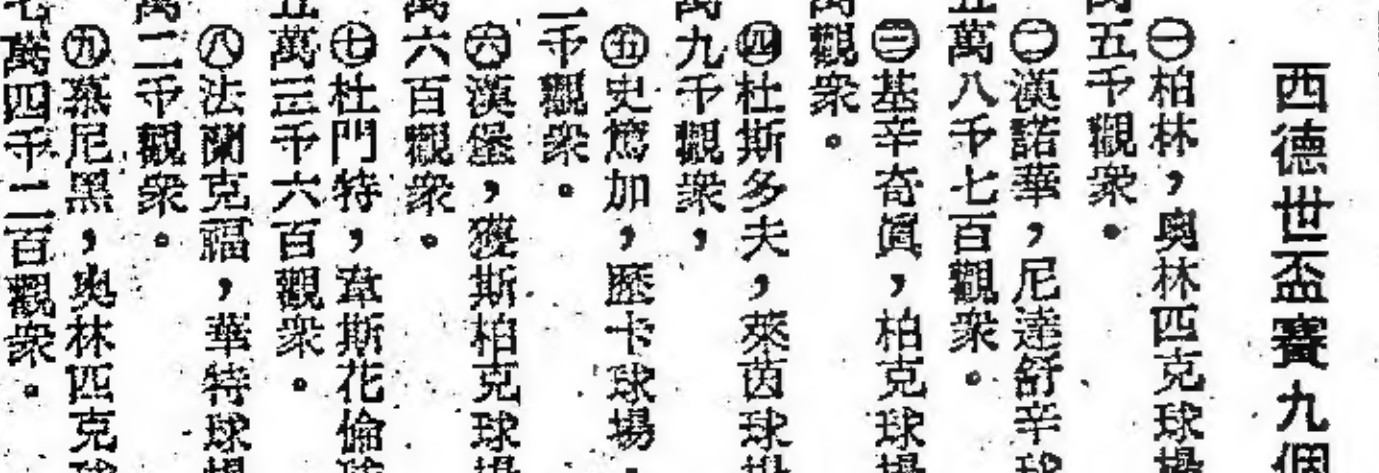 西德世盃賽九個
㊀柏林,奧林匹克球場
萬五千觀衆。
㊁漢諾華,尼達舒辛球
五萬八千七百觀衆。
㊂基辛奇眞,柏克球場
萬觀衆。
㊃杜斯多夫,萊茵球場
萬九千觀衆,
㊄史篤加,歷卡球場,
二千觀衆。
㊅漢堡,獲斯柏克球場
萬六百觀衆。
㊆杜門特,韋斯花倫球
五萬三千六百觀衆。
㊇法蘭克福,華特球場
萬二千觀衆。
㊈慕尼黑,奧林匹克球
七萬四千二百觀衆。